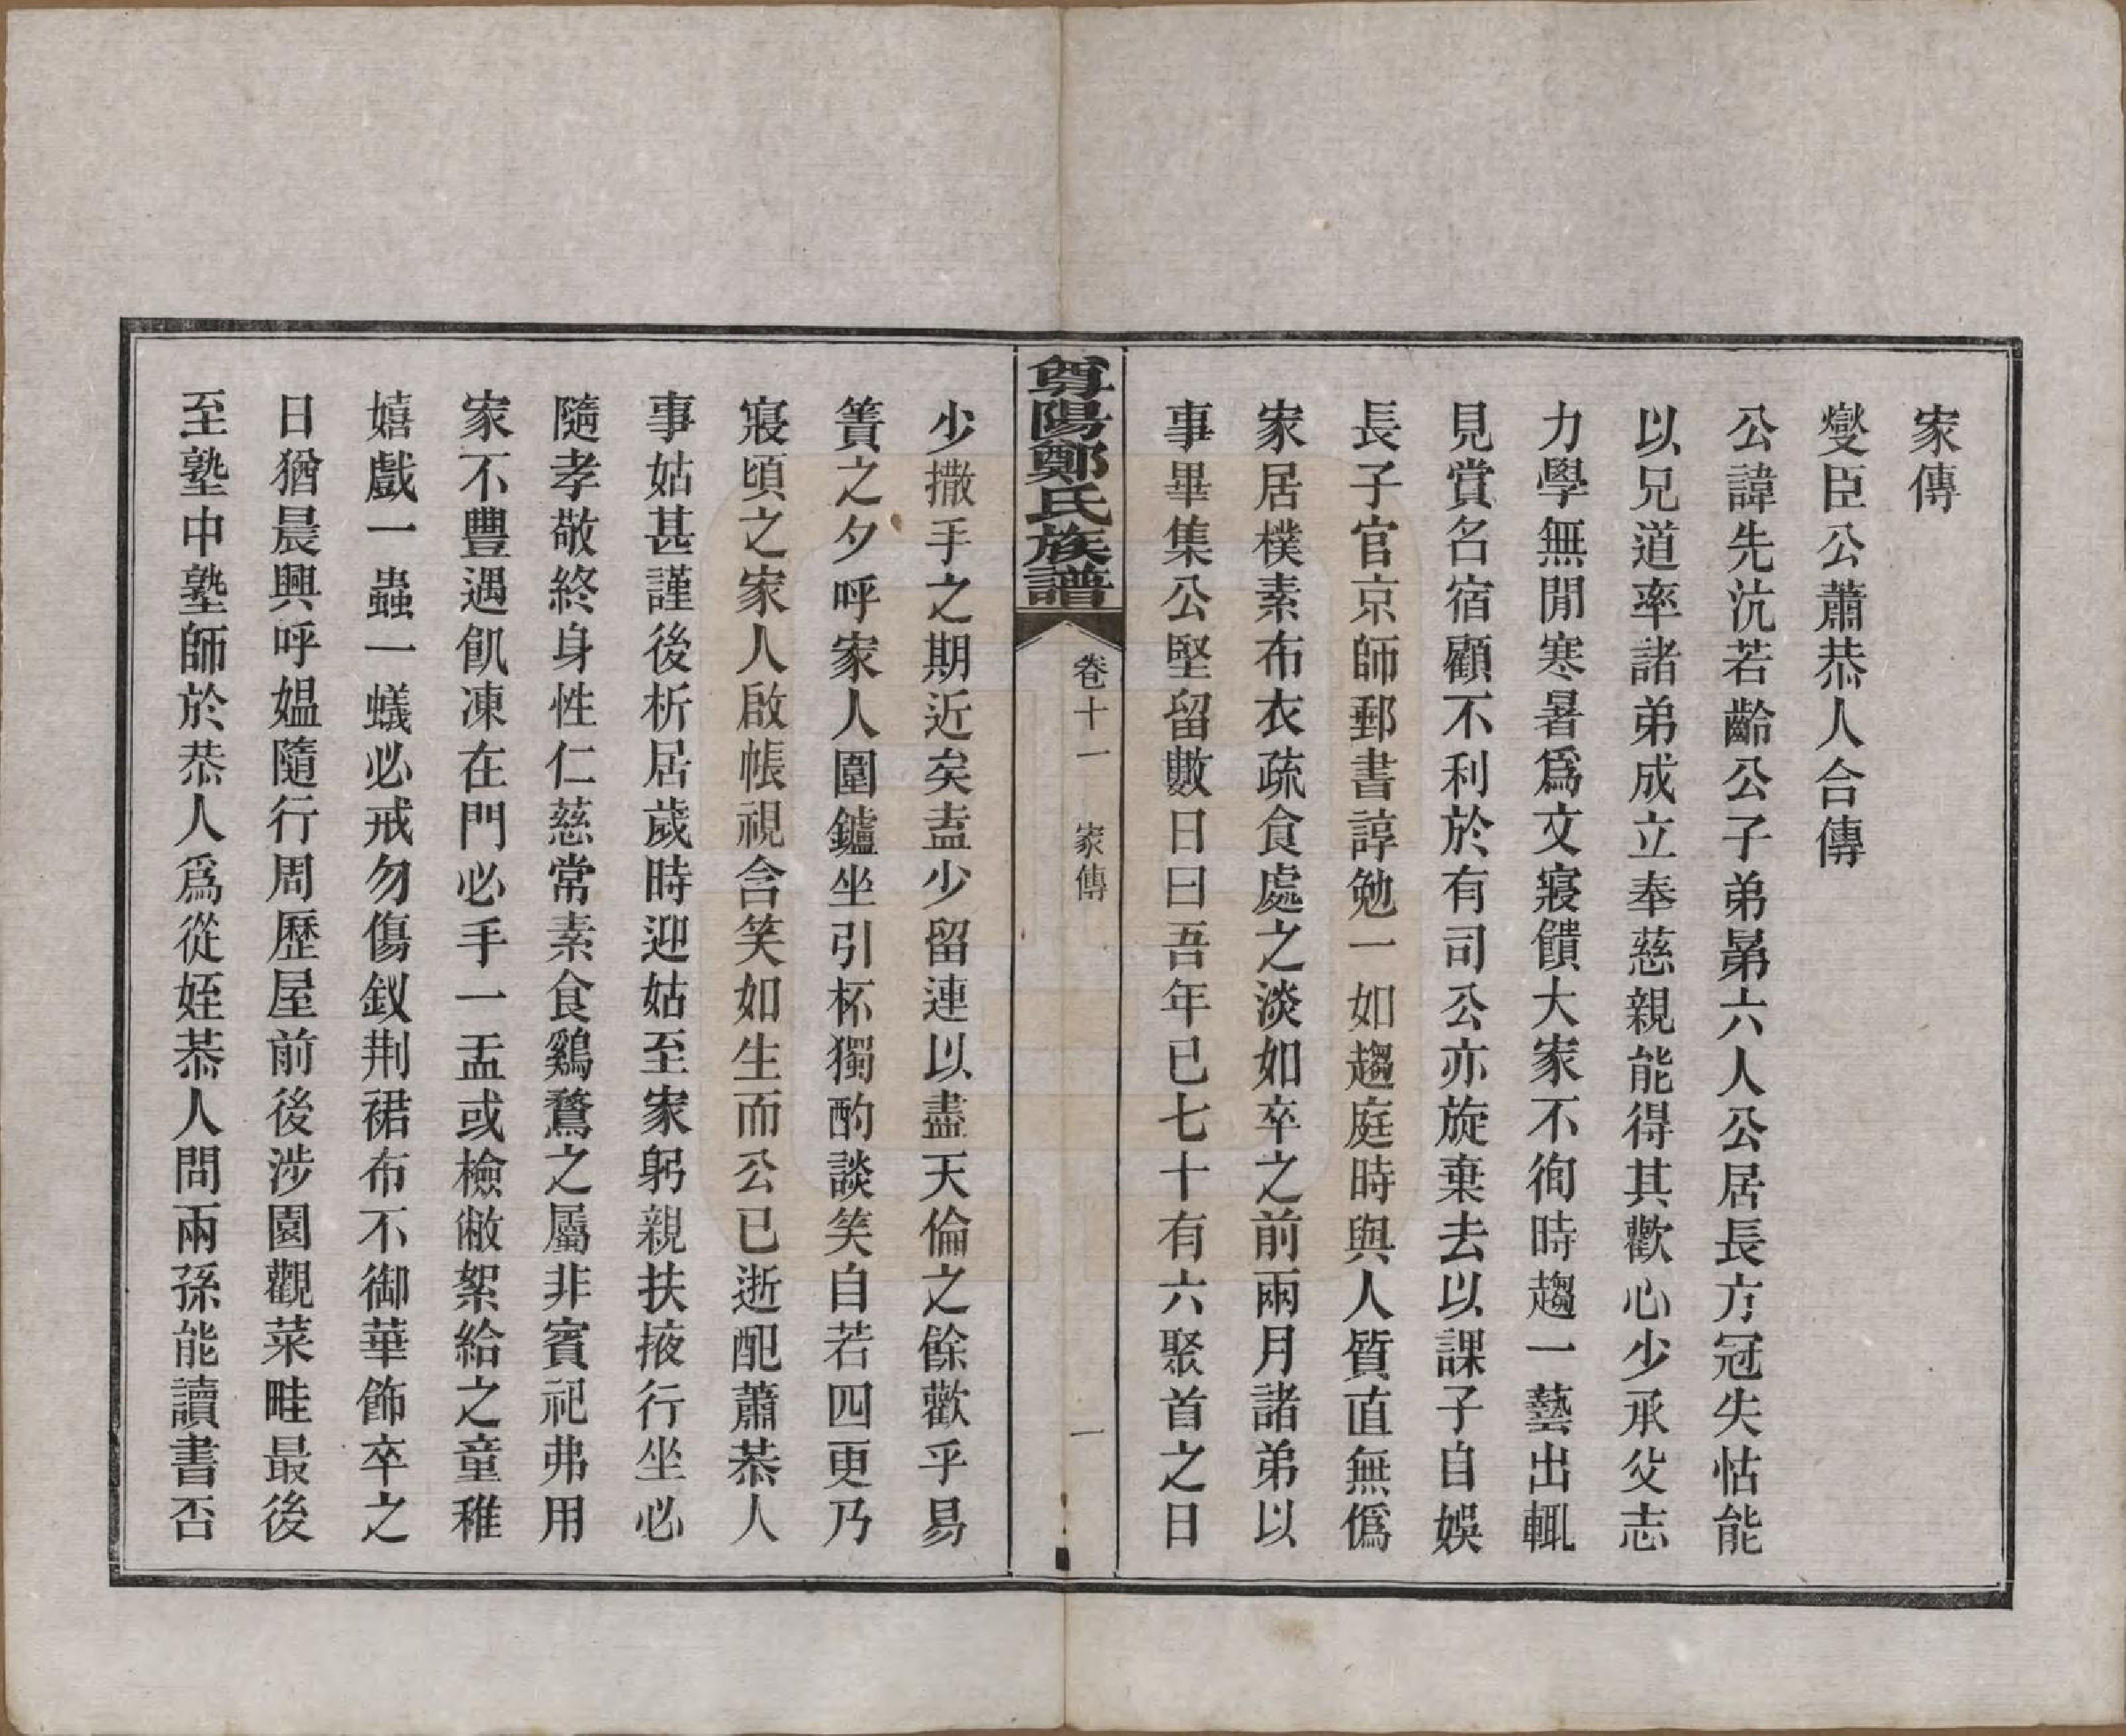 家傳
燮臣公蕭恭人合傳
公諱先沆若齡公子弟第六人公居長方冠失怙能
以兄道率諸弟成立奉慈親能得其歡心少承父志
力學無閒寒暑爲文寢饋大家不徇時趨一藝出輒
見賞名宿顧不利於有司公亦旋棄去以課子自娛
長子官京師郵書諄勉一如趨庭時與人質直無僞
家居樸素布衣疏食處之淡如卒之前兩月諸弟以
事畢集公堅留數日曰吾年已七十有六聚首之日
尊陽鄭氏族譜 卷十一 家傳 一
少撒手之期近矣盍少留連以盡天倫之餘歡乎易
簀之夕呼家人圍鑪坐引杯獨酌談笑自若四更乃
寢頃之家人啟帳視含笑如生而公已逝配蕭恭人
事姑甚謹後析居歲時迎姑至家躬親扶掖行坐必
隨孝敬終身性仁慈常素食鷄鶩之屬非賓祀弗用
家不豐遇飢凍在門必手一盂或檢敝絮給之童稚
嬉戲一蟲一蟻必戒勿傷釵荆裙布不御華飾卒之
日猶晨興呼媼隨行周歷屋前後涉園觀菜畦最後
至塾中塾師於恭人爲從姪恭人問兩孫能讀書否